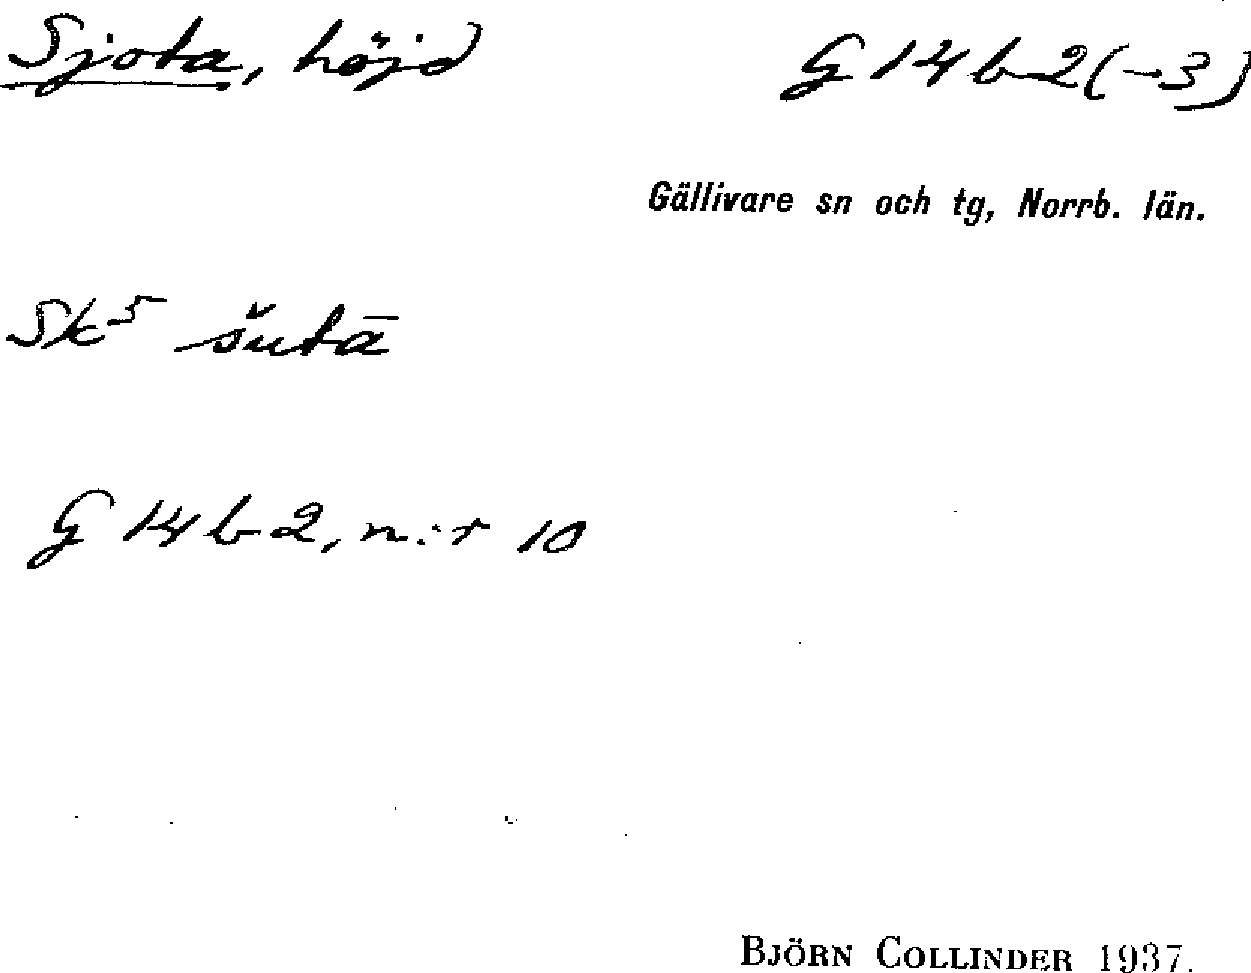 Sjota, höjd
G 14 b 2(-3)
Gällivare sn och tg, Norrb. län.
Sk⁵ šutā
G 14 b 2, n:r 10
BJÖRN COLLINDER 1937.